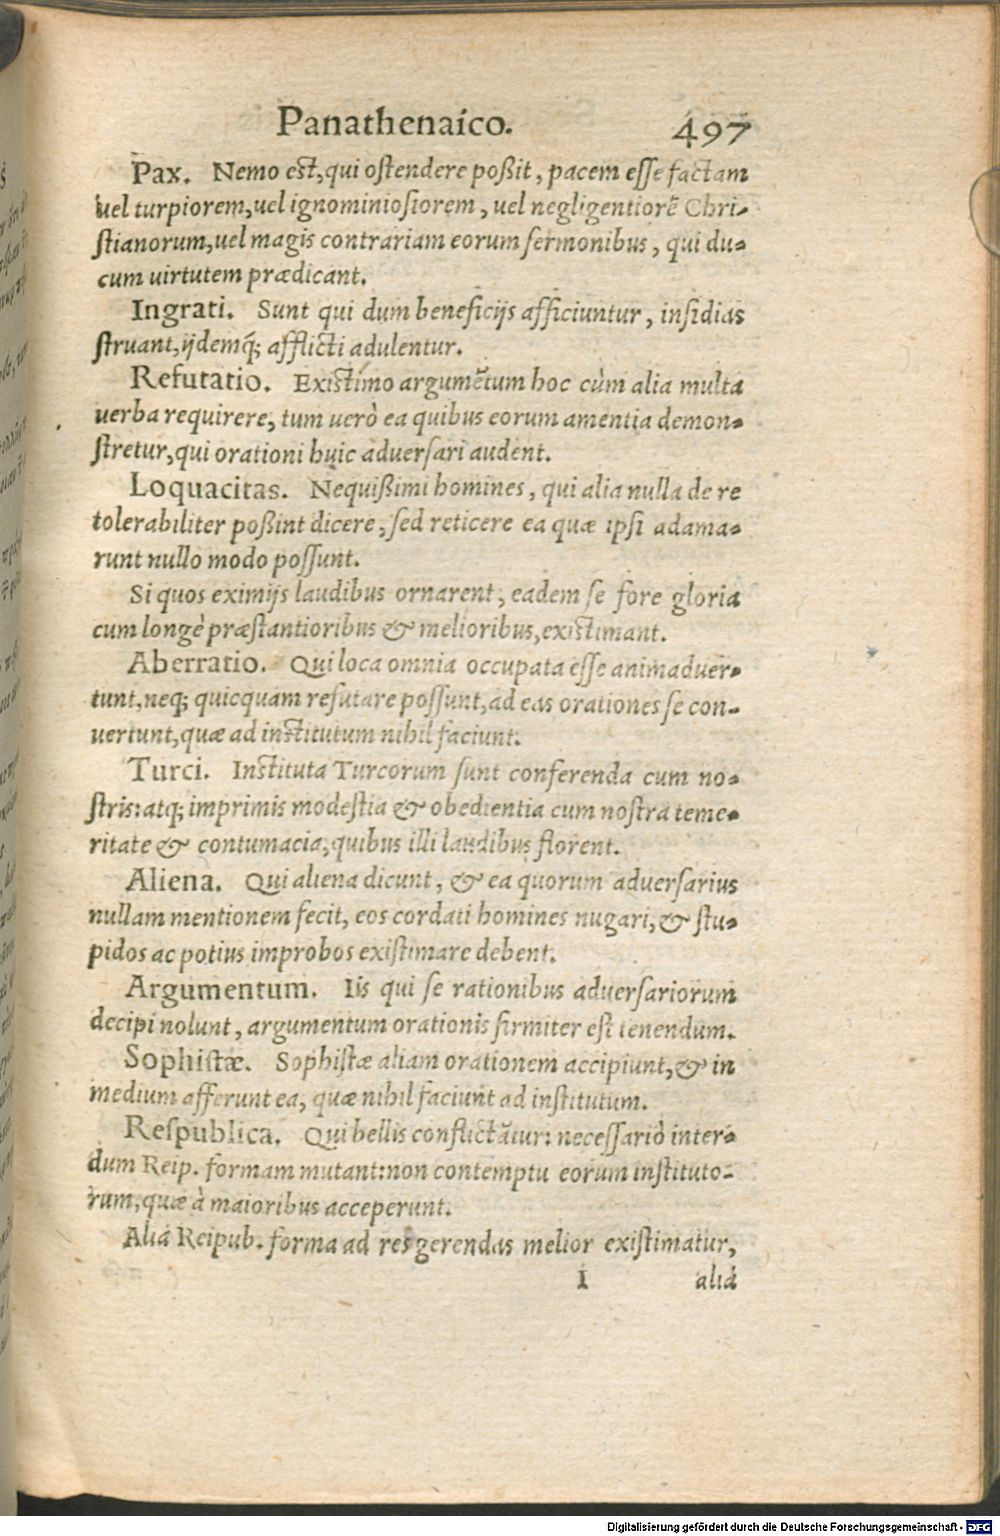 Panathenaico. 497
Pax. Nemo est, qui ostendere poßit, pacem esse factam
uel turpiorem, uel ignominiosiorem, uel negligentiorē Chri-
stianorum, uel magis contrariam eorum sermonibus, qui du-
cum uirtutem prædicant.
Ingrati. Sunt qui dum beneficijs afficiuntur, insidias
struant, ijdemq́; afflicti adulentur.
Refutatio. Existimo argumētum hoc cùm alia multa
uerba requirere, tum uerò ea quibus eorum amentia demon-
stretur, qui orationi huic aduersari audent.
Loquacitas. Nequißimi homines, qui alia nulla de re
tolerabiliter poßint dicere, sed reticere ea quæ ipsi adama-
runt nullo modo possunt.
Si quos eximijs laudibus ornarent, eadem se fore gloria
cum longè præstantioribus & melioribus, existimant.
Aberratio. Qui loca omnia occupata esse animaduer-
tunt, neq; quicquam refutare possunt, ad eas orationes se con-
uertunt, quæ ad institutum nihil faciunt.
Turci. Instituta Turcorum sunt conferenda cum no-
stris: atq; imprimis modestia & obedientia cum nostra teme-
ritate & contumacia, quibus illi laudibus florent.
Aliena. Qui aliena dicunt, & ea quorum aduersarius
nullam mentionem fecit, eos cordati homines nugari, & stu-
pidos ac potius improbos existimare debent.
Argumentum. Iis qui se rationibus aduersariorum
decipi nolunt, argumentum orationis firmiter est tenendum.
Sophistæ. Sophistæ aliam orationem accipiunt, & in
medium afferunt ea, quæ nihil faciunt ad institutum.
Respublica. Qui bellis conflictātur: necessariò inter-
dum Reip. formam mutant: non contemptu eorum instituto-
rum, quæ à maioribus acceperunt.
Alia Reipub. forma ad res gerendas melior existimatur,
I alia
Digitalisierung gefördert durch die Deutsche Forschungsgemeinschaft - DFG